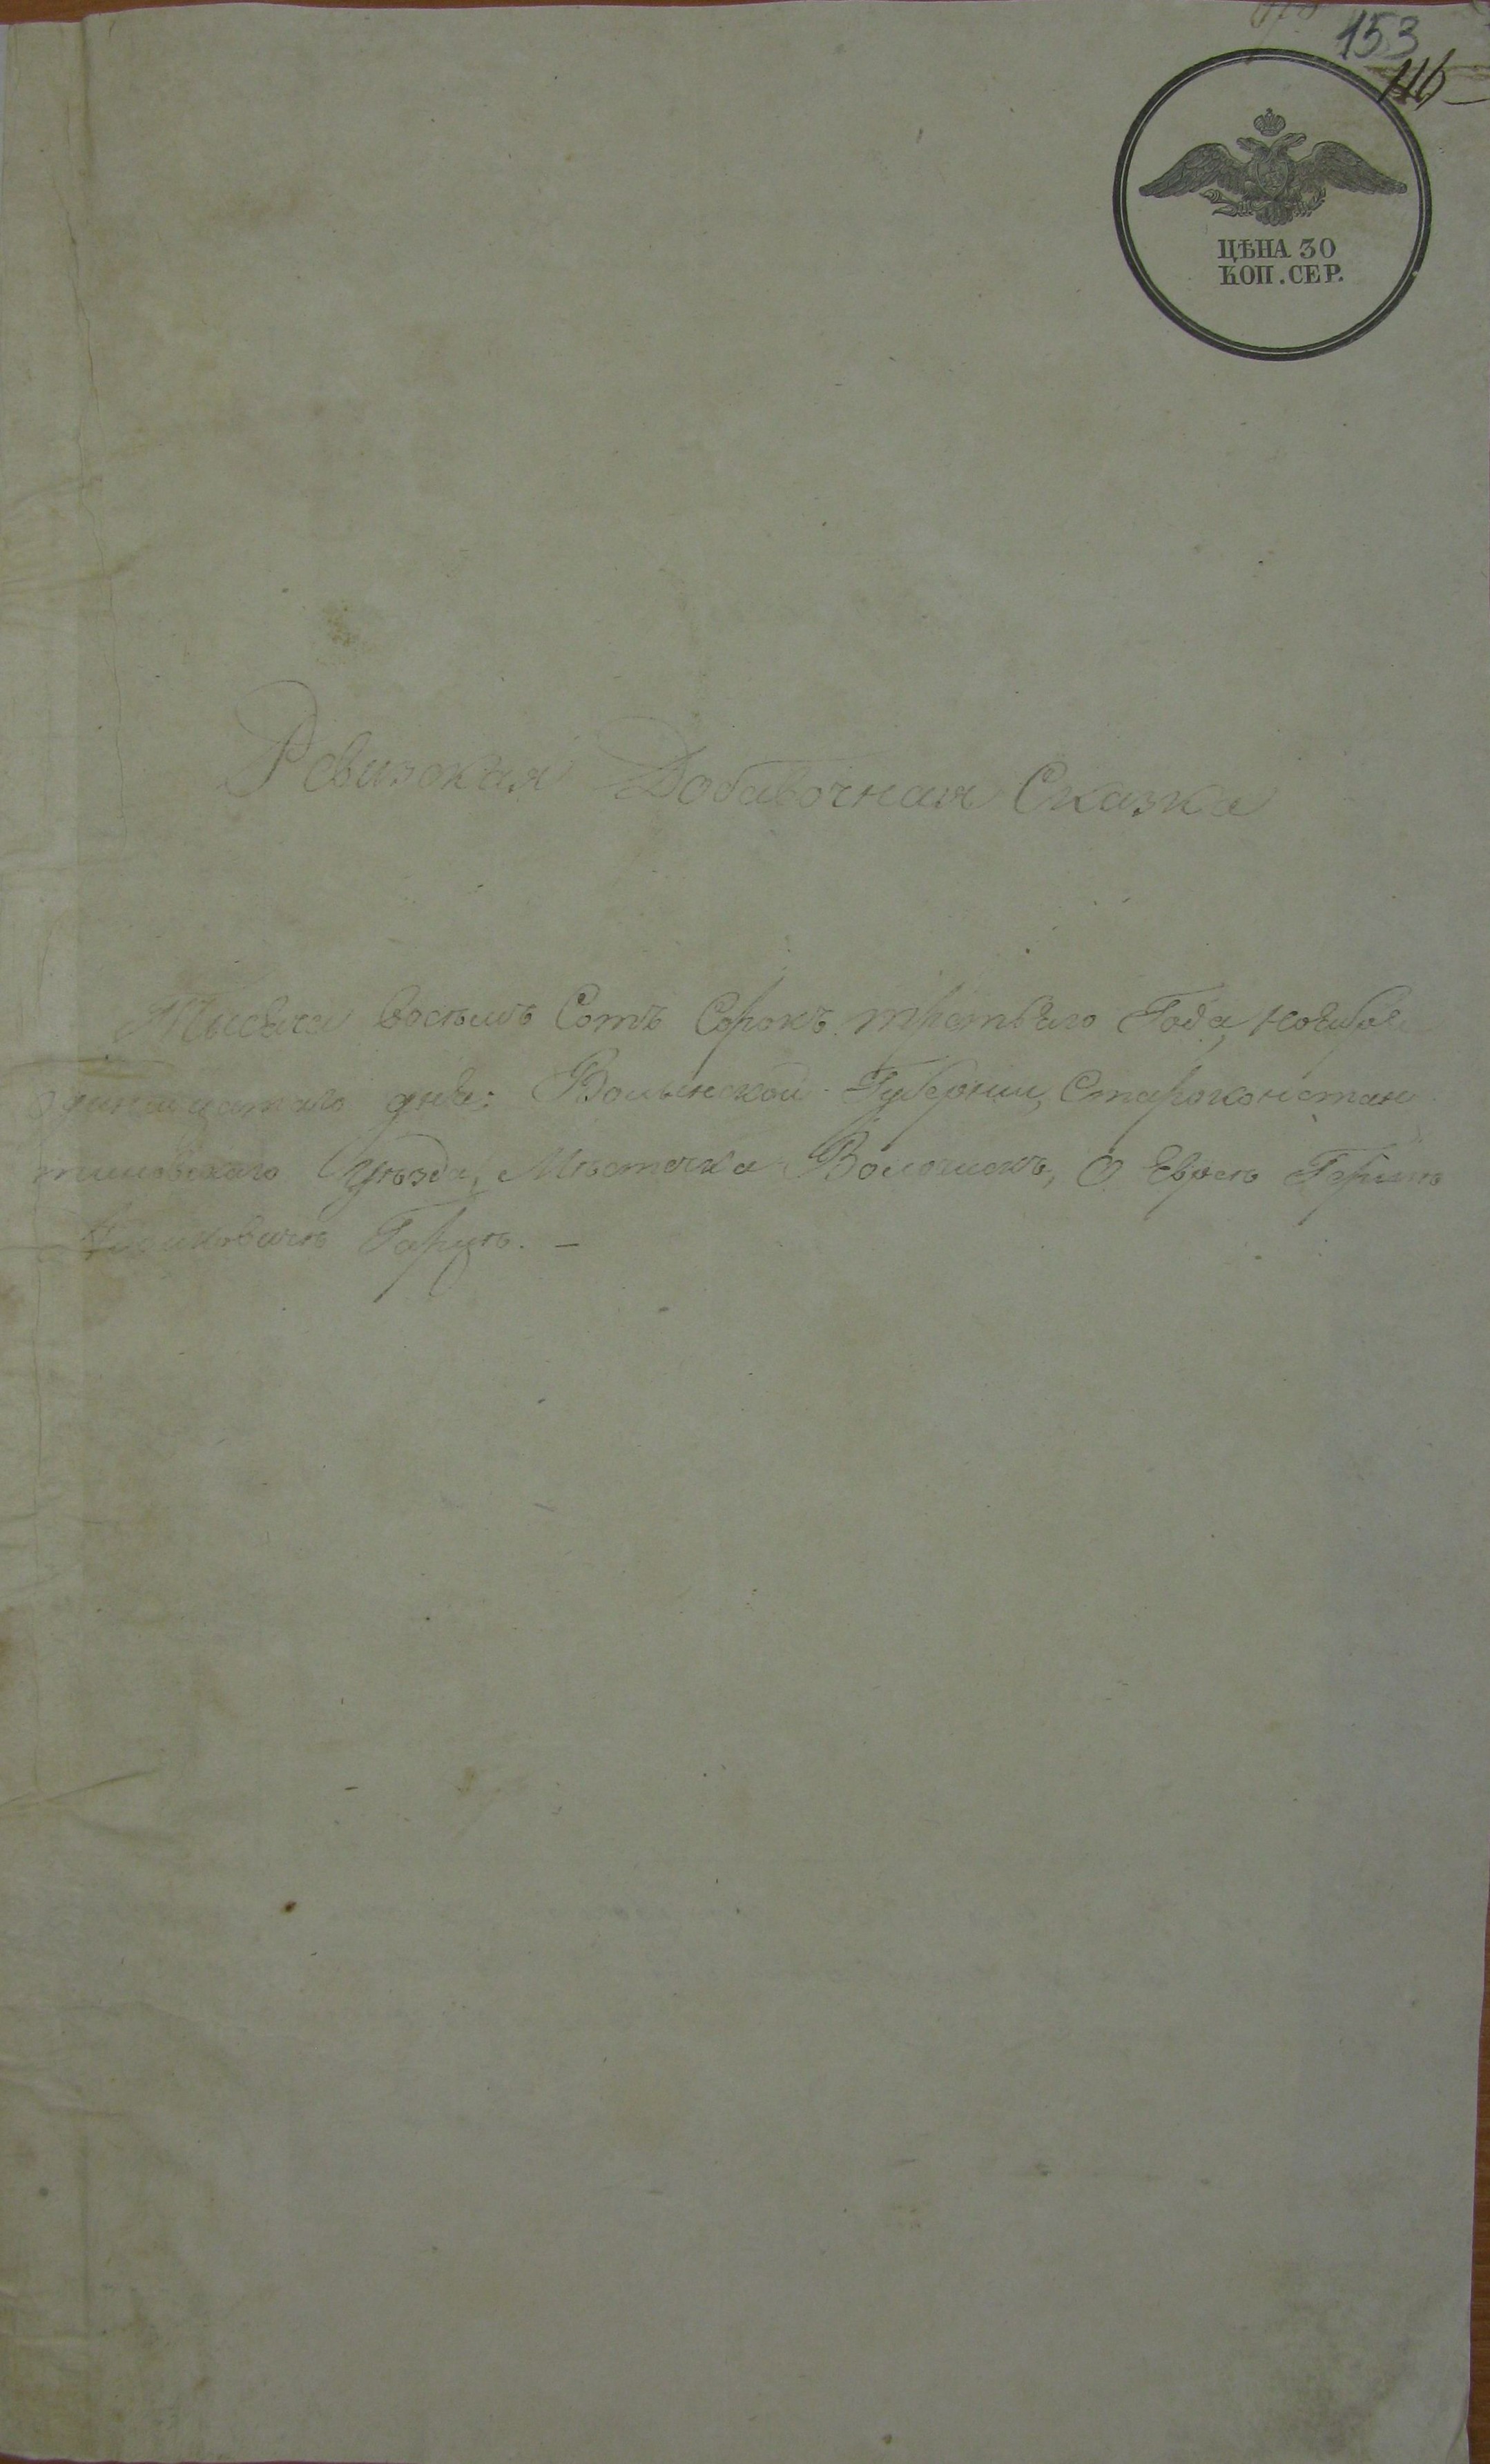 153
ЦѢНА 30
КОП. СЕР.
Ревизская Добавочная Сказка
Тысяча восемь Сотъ Сорокъ третьяго Года, Ноября
одинадцатаго дня: Волынской Губернии, Староконстан
тиновскаго Уѣзда, Мѣстечка Волочискъ, О Евреѣ